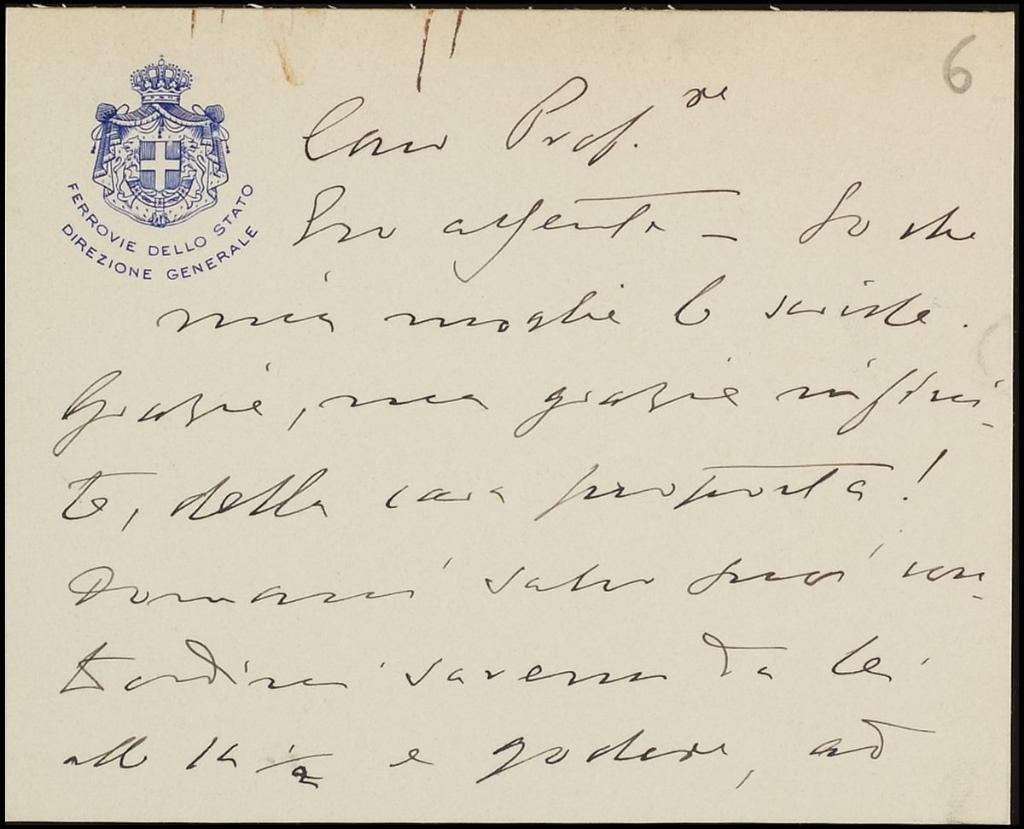 6
FERROVIE DELLO STATO
DIREZIONE GENERALE
Caro Prof.re
Ero assente – So che
mia moglie le scrisse.
Grazie, ma grazie infini-
te, della cara proposta!
Domani salvo suoi con-
tordini saremo da lei
alle 14 1/2 e godere, ad